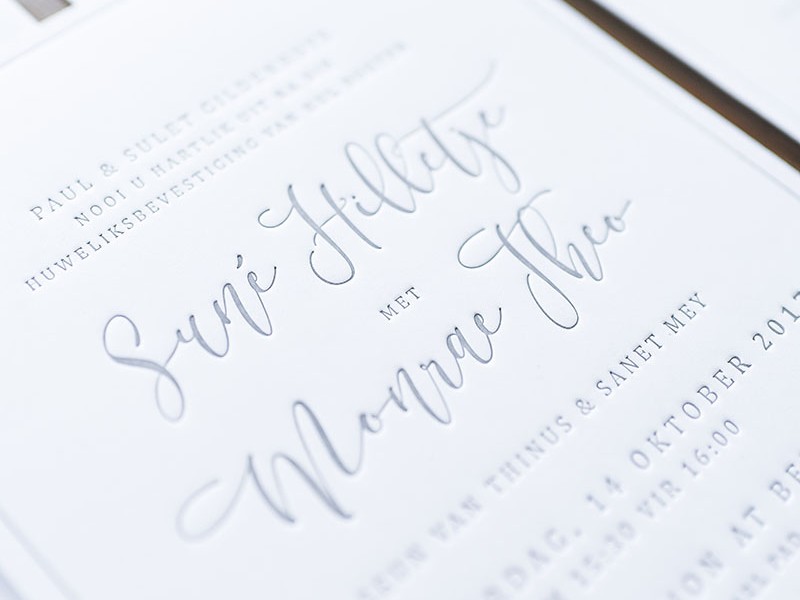 PAUL & SULET GILDENHUYS
NOOI U HARTLIK UIT NA DIE
HUWELIKSBEVESTIGING VAN HUL DOGTER
Suné Hilletje
MET
Monrae Theo
SEUN VAN THINUS & SANET MEY
RDAG, 14 OKTOBER 2017
15:30 VIR 16:00
ION AT BE